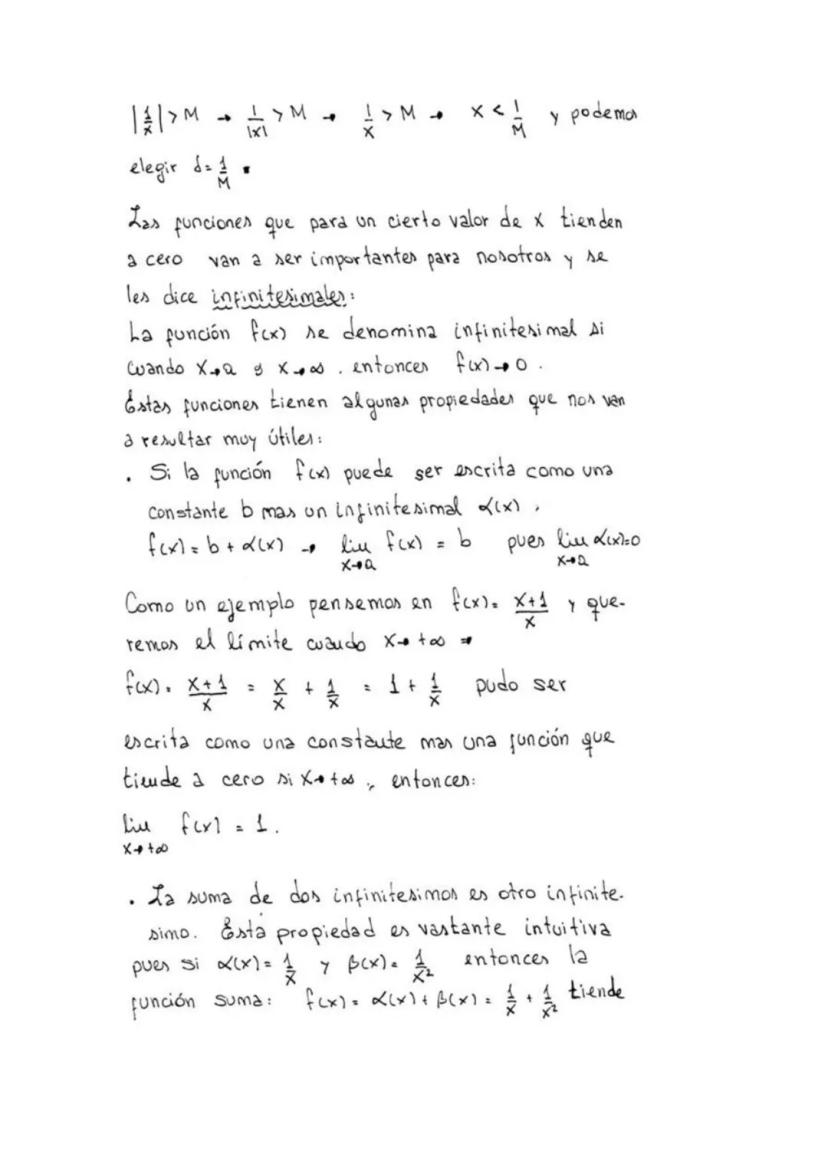 |1/x| > M → 1/|x| > M → 1/x > M → x < 1/M y podemos
elegir δ = 1/M .
Las funciones que para un cierto valor de x tienden
a cero van a ser importantes para nosotros y se
les dice infinitesimales:
La función f(x) se denomina infinitesimal si
cuando x→a ó x→∞ . entonces f(x)→0 .
Estas funciones tienen algunas propiedades que nos van
a resultar muy útiles:
. Si la función f(x) puede ser escrita como una
constante b mas un infinitesimal α(x) ,
f(x) = b + α(x) → lim x→a f(x) = b pues lim x→a α(x)=0
Como un ejemplo pensemos en f(x) = x+1/x y que-
remos el límite cuando x→ +∞ ⇒
f(x) = x+1/x = x/x + 1/x = 1 + 1/x pudo ser
escrita como una constante mas una función que
tiende a cero si x→+∞ , entonces:
lim x→+∞ f(x) = 1 .
. La suma de dos infinitesimos es otro infinite-
simo. Esta propiedad es vastante intuitiva
pues si α(x) = 1/x y β(x) = 1/x² entonces la
función suma: f(x) = α(x) + β(x) = 1/x + 1/x² tiende